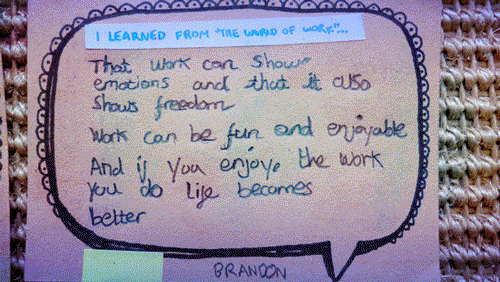 I LEARNED FROM "THE WORLD OF WORK"...
That work can show
emotions and that it also
shows freedom
Work can be fun and enjoyable
And if you enjoy the work
you do life becomes
better
BRANDON